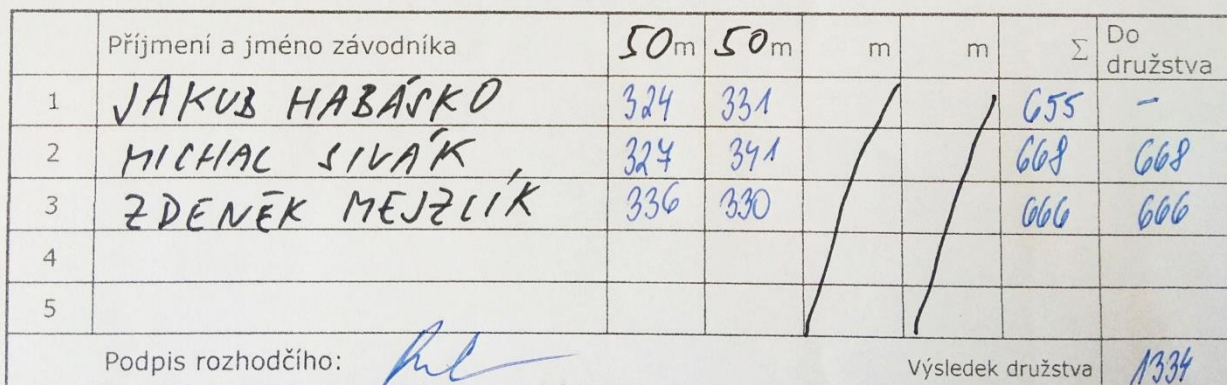 Příjmení a jméno závodníka 50m 50m m m Σ Do družstva
1 JAKUB HABÁSKO 324 331 655 -
2 MICHAL SIVÁK 327 341 668 668
3 ZDENĚK MEJZLÍK 336 330 666 666
4
5
Podpis rozhodčího: Výsledek družstva 1334